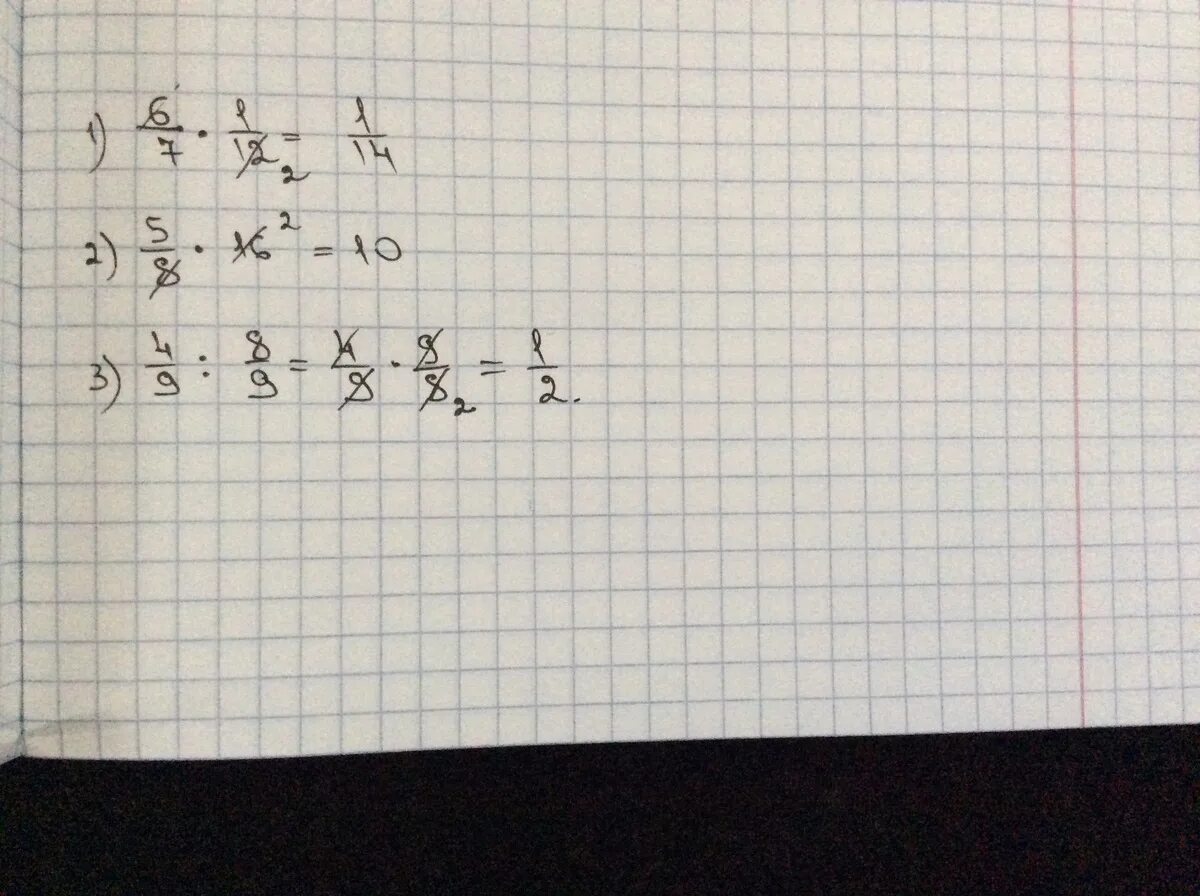 1) 6/7 · 1/12 2 = 1/14
2) 5/8 · 16 2 = 10
3) 4/9 : 8/9 = 4/9 · 9/8 2 = 1/2.